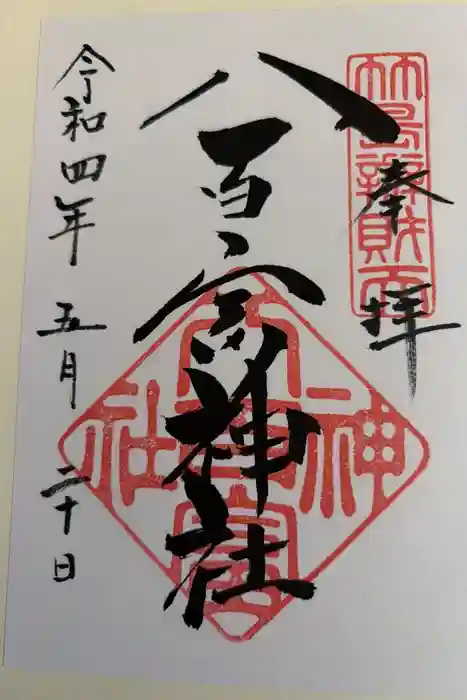 奉拝
竹島辨財天
八百富神社
八百富神社
令和四年五月二十日